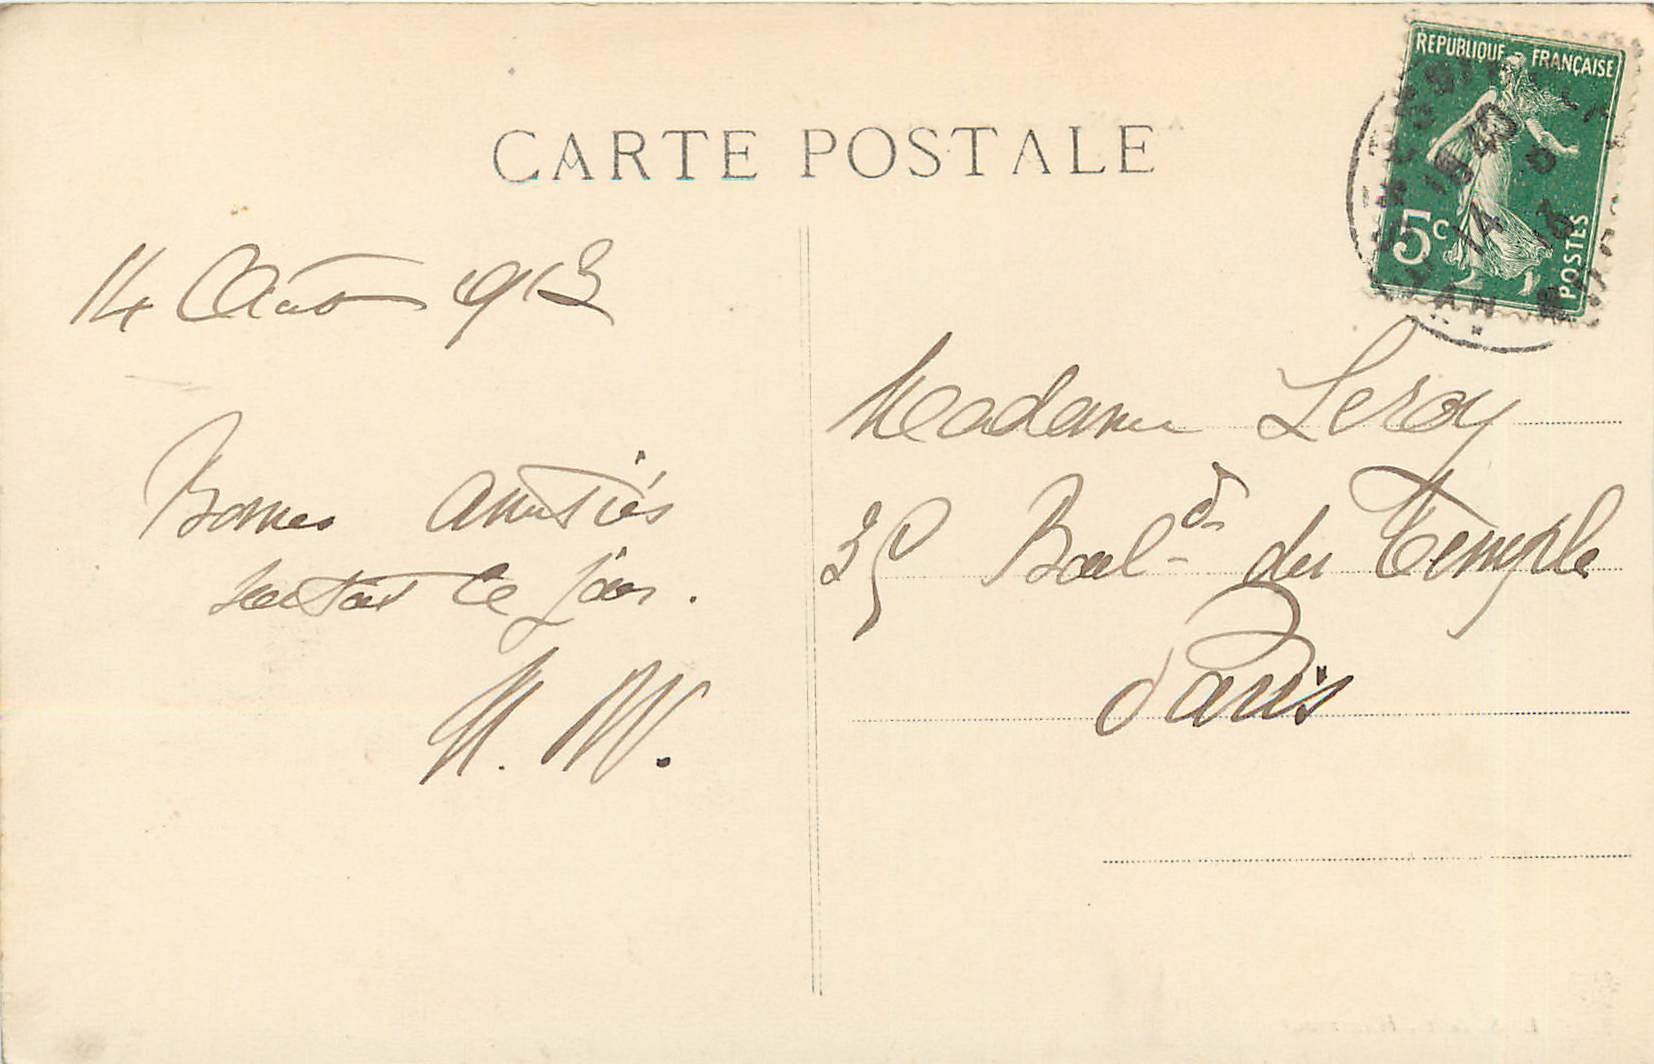 CARTE POSTALE
REPUBLIQUE FRANÇAISE
5c
POSTES
14 Août 913
Bonnes amitiés
ce jour.
M. W.
Madame Leroy
35 Boul d du Temple
Paris